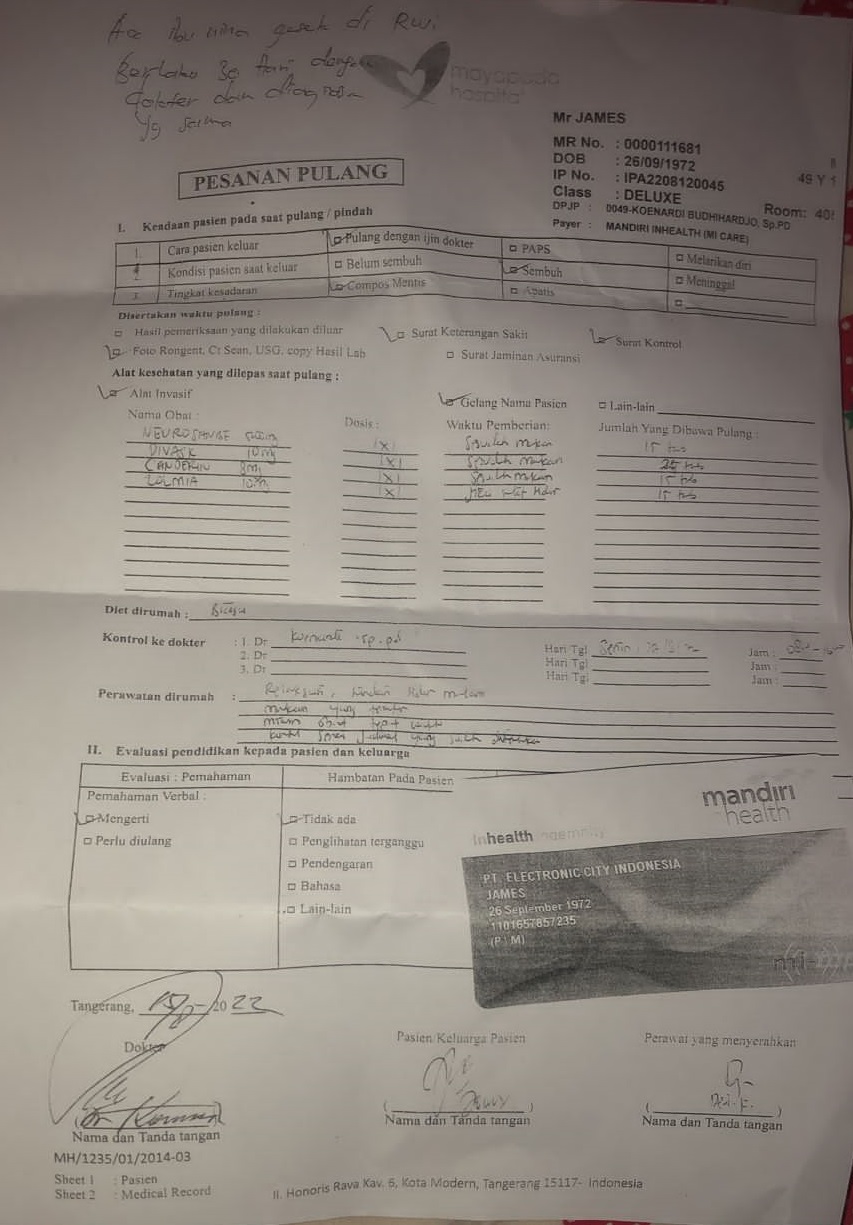 Acc ibu nina gesek di RWI
Berlaku 30 hari dengan
dokter dan diagnosa
yg sama
mayapada
hospital
Mr JAMES
MR No. : 0000111681
DOB : 26/09/1972
IP No. : IPA2208120045
49 Y
Class : DELUXE
Room: 40
DPJP : 0049-KOENARDI BUDHIHARDJO, Sp.PD
Payer : MANDIRI INHEALTH (MI CARE)
PESANAN PULANG
I. Keadaan pasien pada saat pulang / pindah
1. Cara pasien keluar Pulang dengan ijin dokter PAPS Melarikan diri
2. Kondisi pasien saat keluar Belum sembuh Sembuh Meninggal
3. Tingkat kesadaran Compos Mentis Apatis
Disertakan waktu pulang :
Hasil pemeriksaan yang dilakukan diluar Surat Keterangan Sakit Surat Kontrol
Foto Rongent, Ct Scan, USG, copy Hasil Lab Surat Jaminan Asuransi
Alat kesehatan yang dilepas saat pulang :
Alat Invasif Gelang Nama Pasien Lain-lain
Nama Obat : Dosis : Waktu Pemberian: Jumlah Yang Dibawa Pulang :
1x1 15
DIVASK 10mg 1x1
CANDERIN 8mg 1x1 15
ZOLMIA 10mg 1x1 15
Diet dirumah :
Kontrol ke dokter : 1. Dr Sp.pd Hari Tgl Jam :
2. Dr Hari Tgl Jam :
3. Dr Hari Tgl Jam :
Perawatan dirumah :
makan yang
minum obat
II. Evaluasi pendidikan kepada pasien dan keluarga
Evaluasi : Pemahaman Hambatan Pada Pasien
Pemahaman Verbal :
Mengerti Tidak ada
Perlu diulang Penglihatan terganggu
Pendengaran
Bahasa
Lain-lain
mandiri
health
Inhealth Indemnity
PT. ELECTRONIC CITY INDONESIA
JAMES
26 September 1972
1101657857235
(P \ M)
Tangerang, 2022
Dokter Pasien/Keluarga Pasien Perawat yang menyerahkan
Nama dan Tanda tangan Nama dan Tanda tangan Nama dan Tanda tangan
MH/1235/01/2014-03
Sheet 1 : Pasien
Sheet 2 : Medical Record
Jl. Honoris Raya Kav. 6, Kota Modern, Tangerang 15117- Indonesia